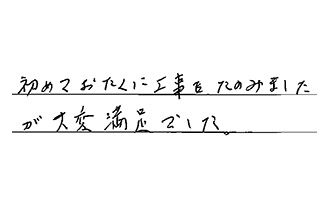 初めておたくに工事をたのみました
が大変満足でした。